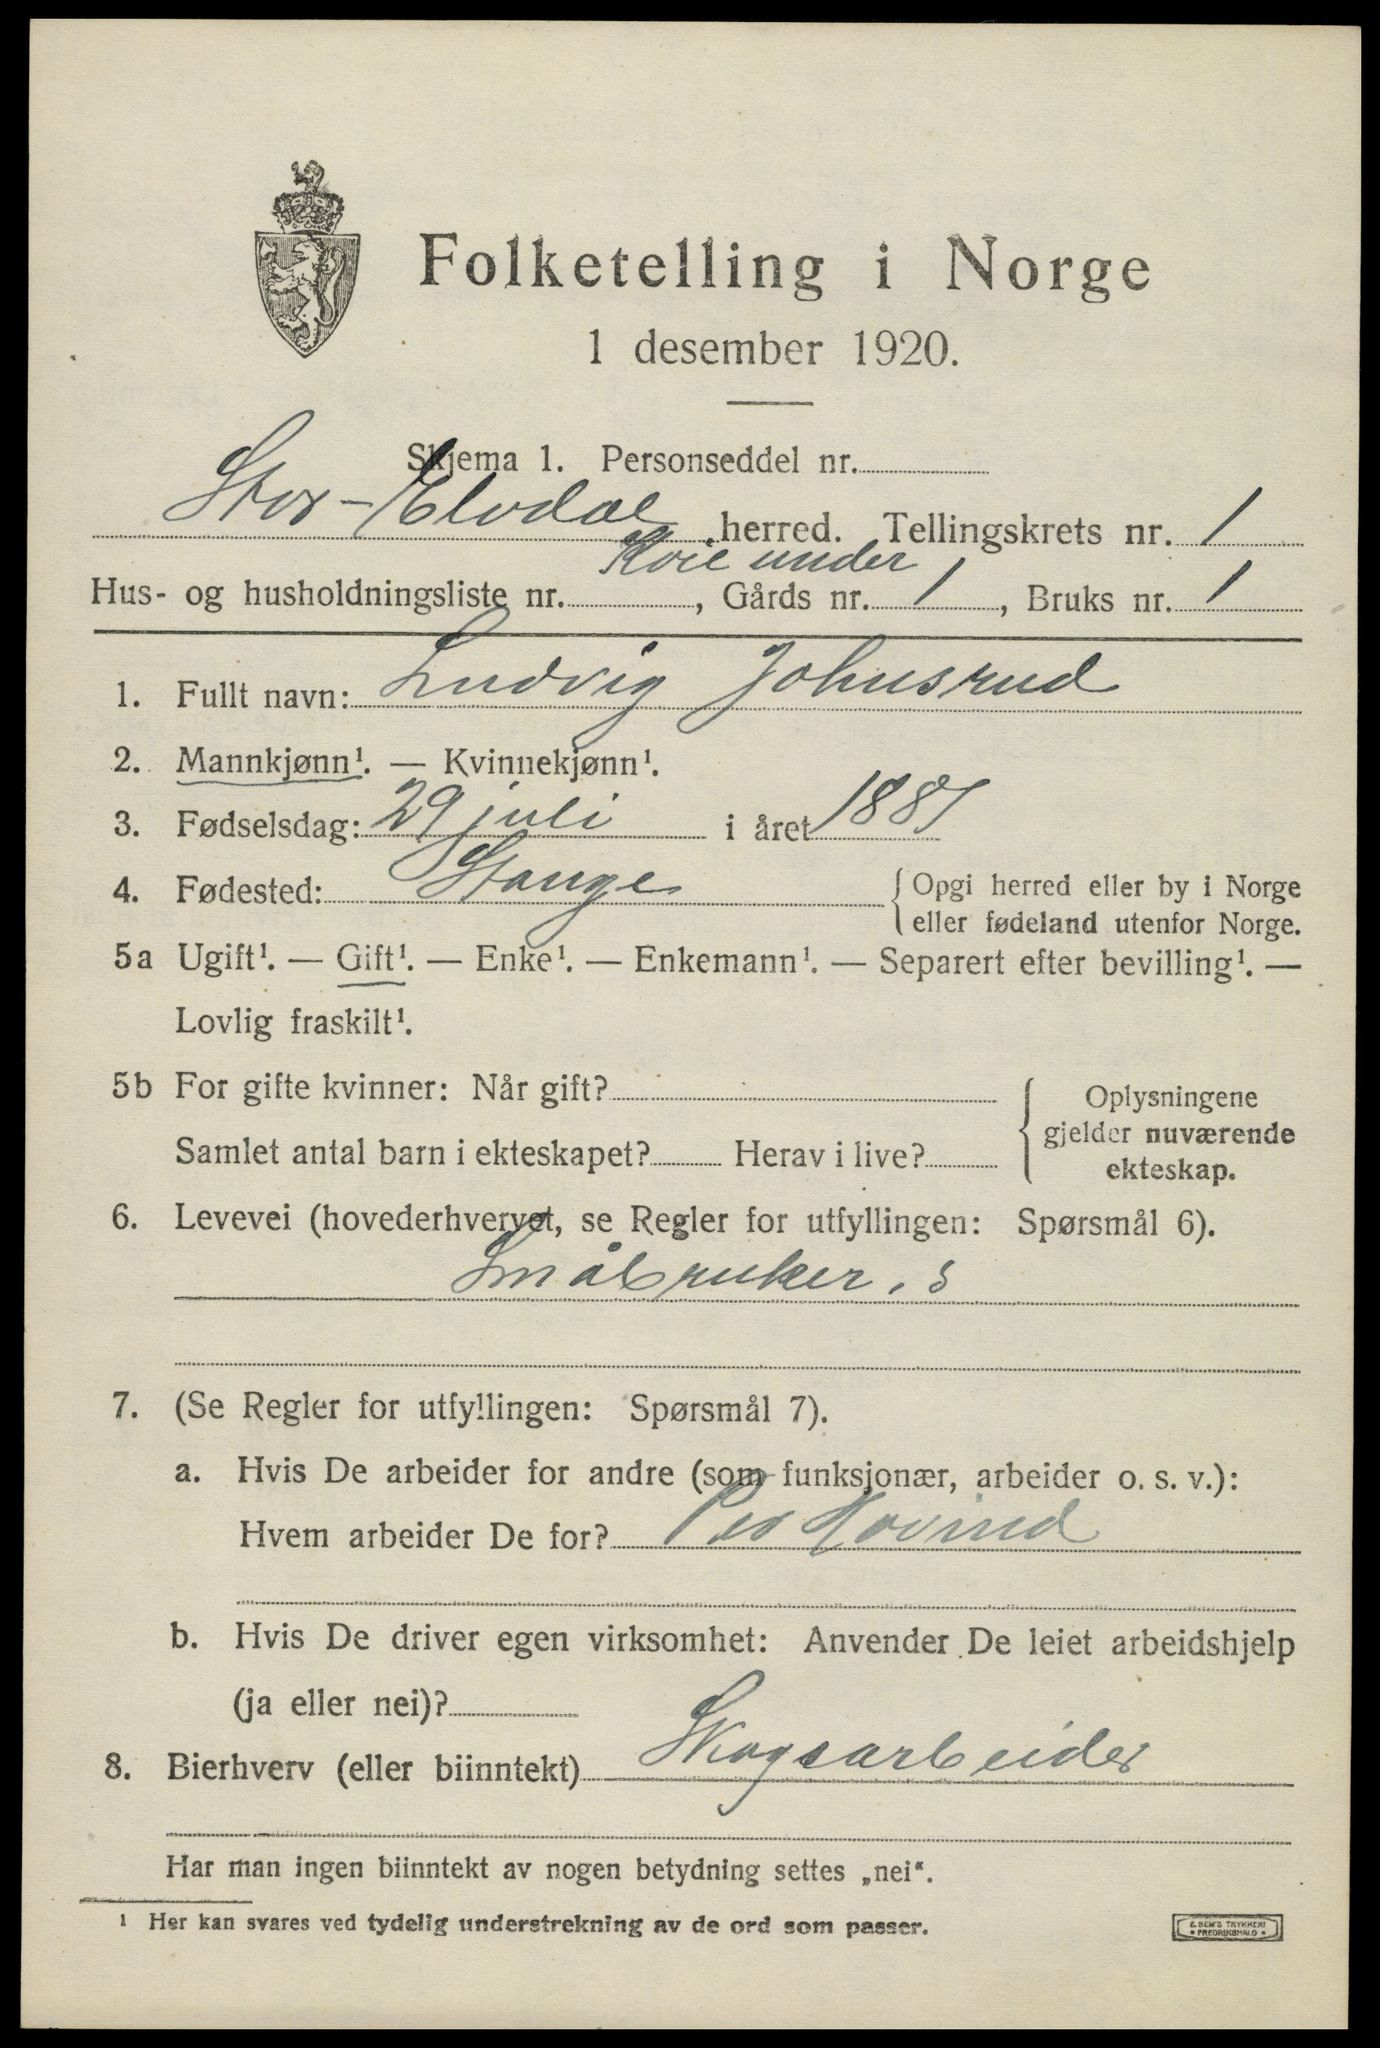 Folketelling i Norge
1 desember 1920.
Skjema 1. Personseddel nr.
Stor-Elvdal herred. Tellingskrets nr. 1
Koie under
Hus- og husholdningsliste nr. , Gårds nr. 1 , Bruks nr. 1
1. Fullt navn: Ludvig Johnsrud
2. Mannkjønn¹. — Kvinnekjønn¹.
3. Fødselsdag: 29 juli i året 1887
4. Fødested: Stange
{ Opgi herred eller by i Norge
eller fødeland utenfor Norge.
5a Ugift¹. — Gift¹. — Enke¹. — Enkemann¹. — Separert efter bevilling¹. —
Lovlig fraskilt¹.
5b For gifte kvinner: Når gift?
Samlet antal barn i ekteskapet? Herav i live?
{ Oplysningene
gjelder nuværende
ekteskap.
6. Levevei (hovederhvervet, se Regler for utfyllingen: Spørsmål 6).
Småbruker. s
7. (Se Regler for utfyllingen: Spørsmål 7).
a. Hvis De arbeider for andre (som funksjonær, arbeider o. s. v.):
Hvem arbeider De for? Per Hovind
b. Hvis De driver egen virksomhet: Anvender De leiet arbeidshjelp
(ja eller nei)?
8. Bierhverv (eller biinntekt) Skogsarbeider
Har man ingen biinntekt av nogen betydning settes „nei“.
¹ Her kan svares ved tydelig understrekning av de ord som passer.
E. SEM'S TRYKKERI
* FREDRIKSHALD *